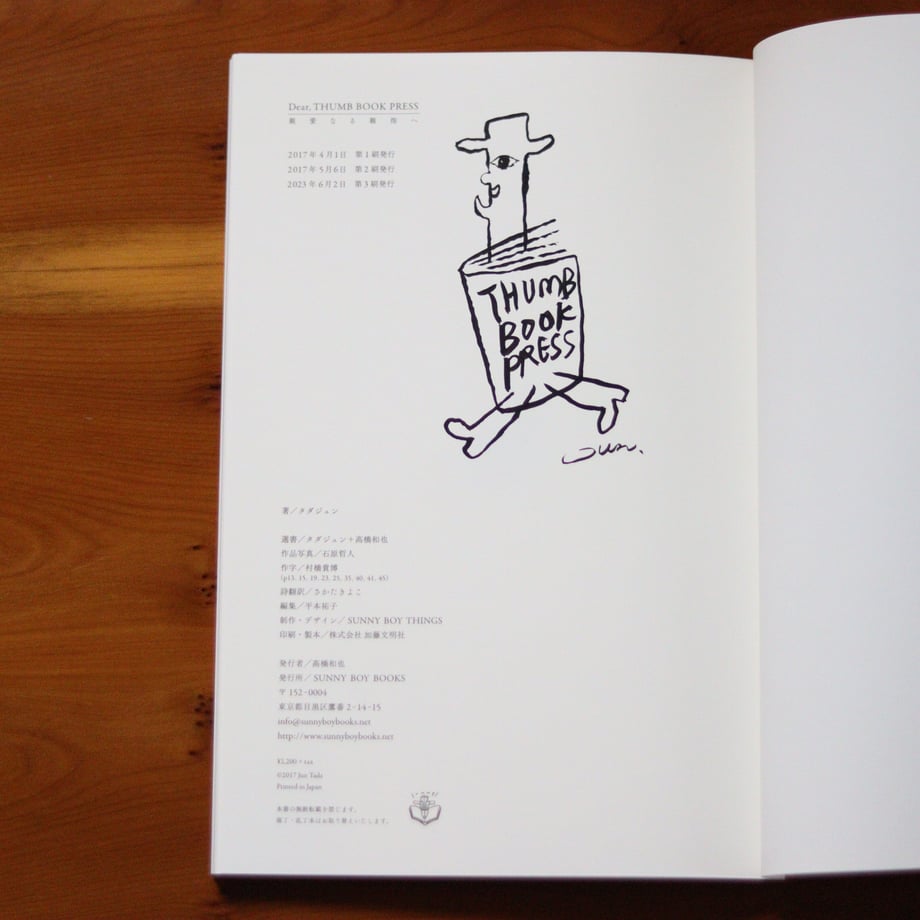 Dear, THUMB BOOK PRESS
親愛なる親指へ
2017年4月1日 第1刷発行
2017年5月6日 第2刷発行
2023年6月2日 第3刷発行
THUMB
BOOK
PRESS
Jun.
著／タダジュン
選書／タダジュン+高橋和也
作品写真／石原哲人
作字／村橋貴博
(p13, 15, 19, 23, 25, 35, 40, 41, 45)
詩翻訳／さかたきよこ
編集／平本祐子
制作・デザイン／SUNNY BOY THINGS
印刷・製本／株式会社 加藤文明社
発行者／高橋和也
発行所／SUNNY BOY BOOKS
〒152-0004
東京都目黒区鷹番2-14-15
info@sunnyboybooks.net
http://www.sunnyboybooks.net
¥1,200+tax
©2017 Jun Tada
Printed in Japan
本書の無断転載を禁じます。
落丁・乱丁本はお取り替えいたします。